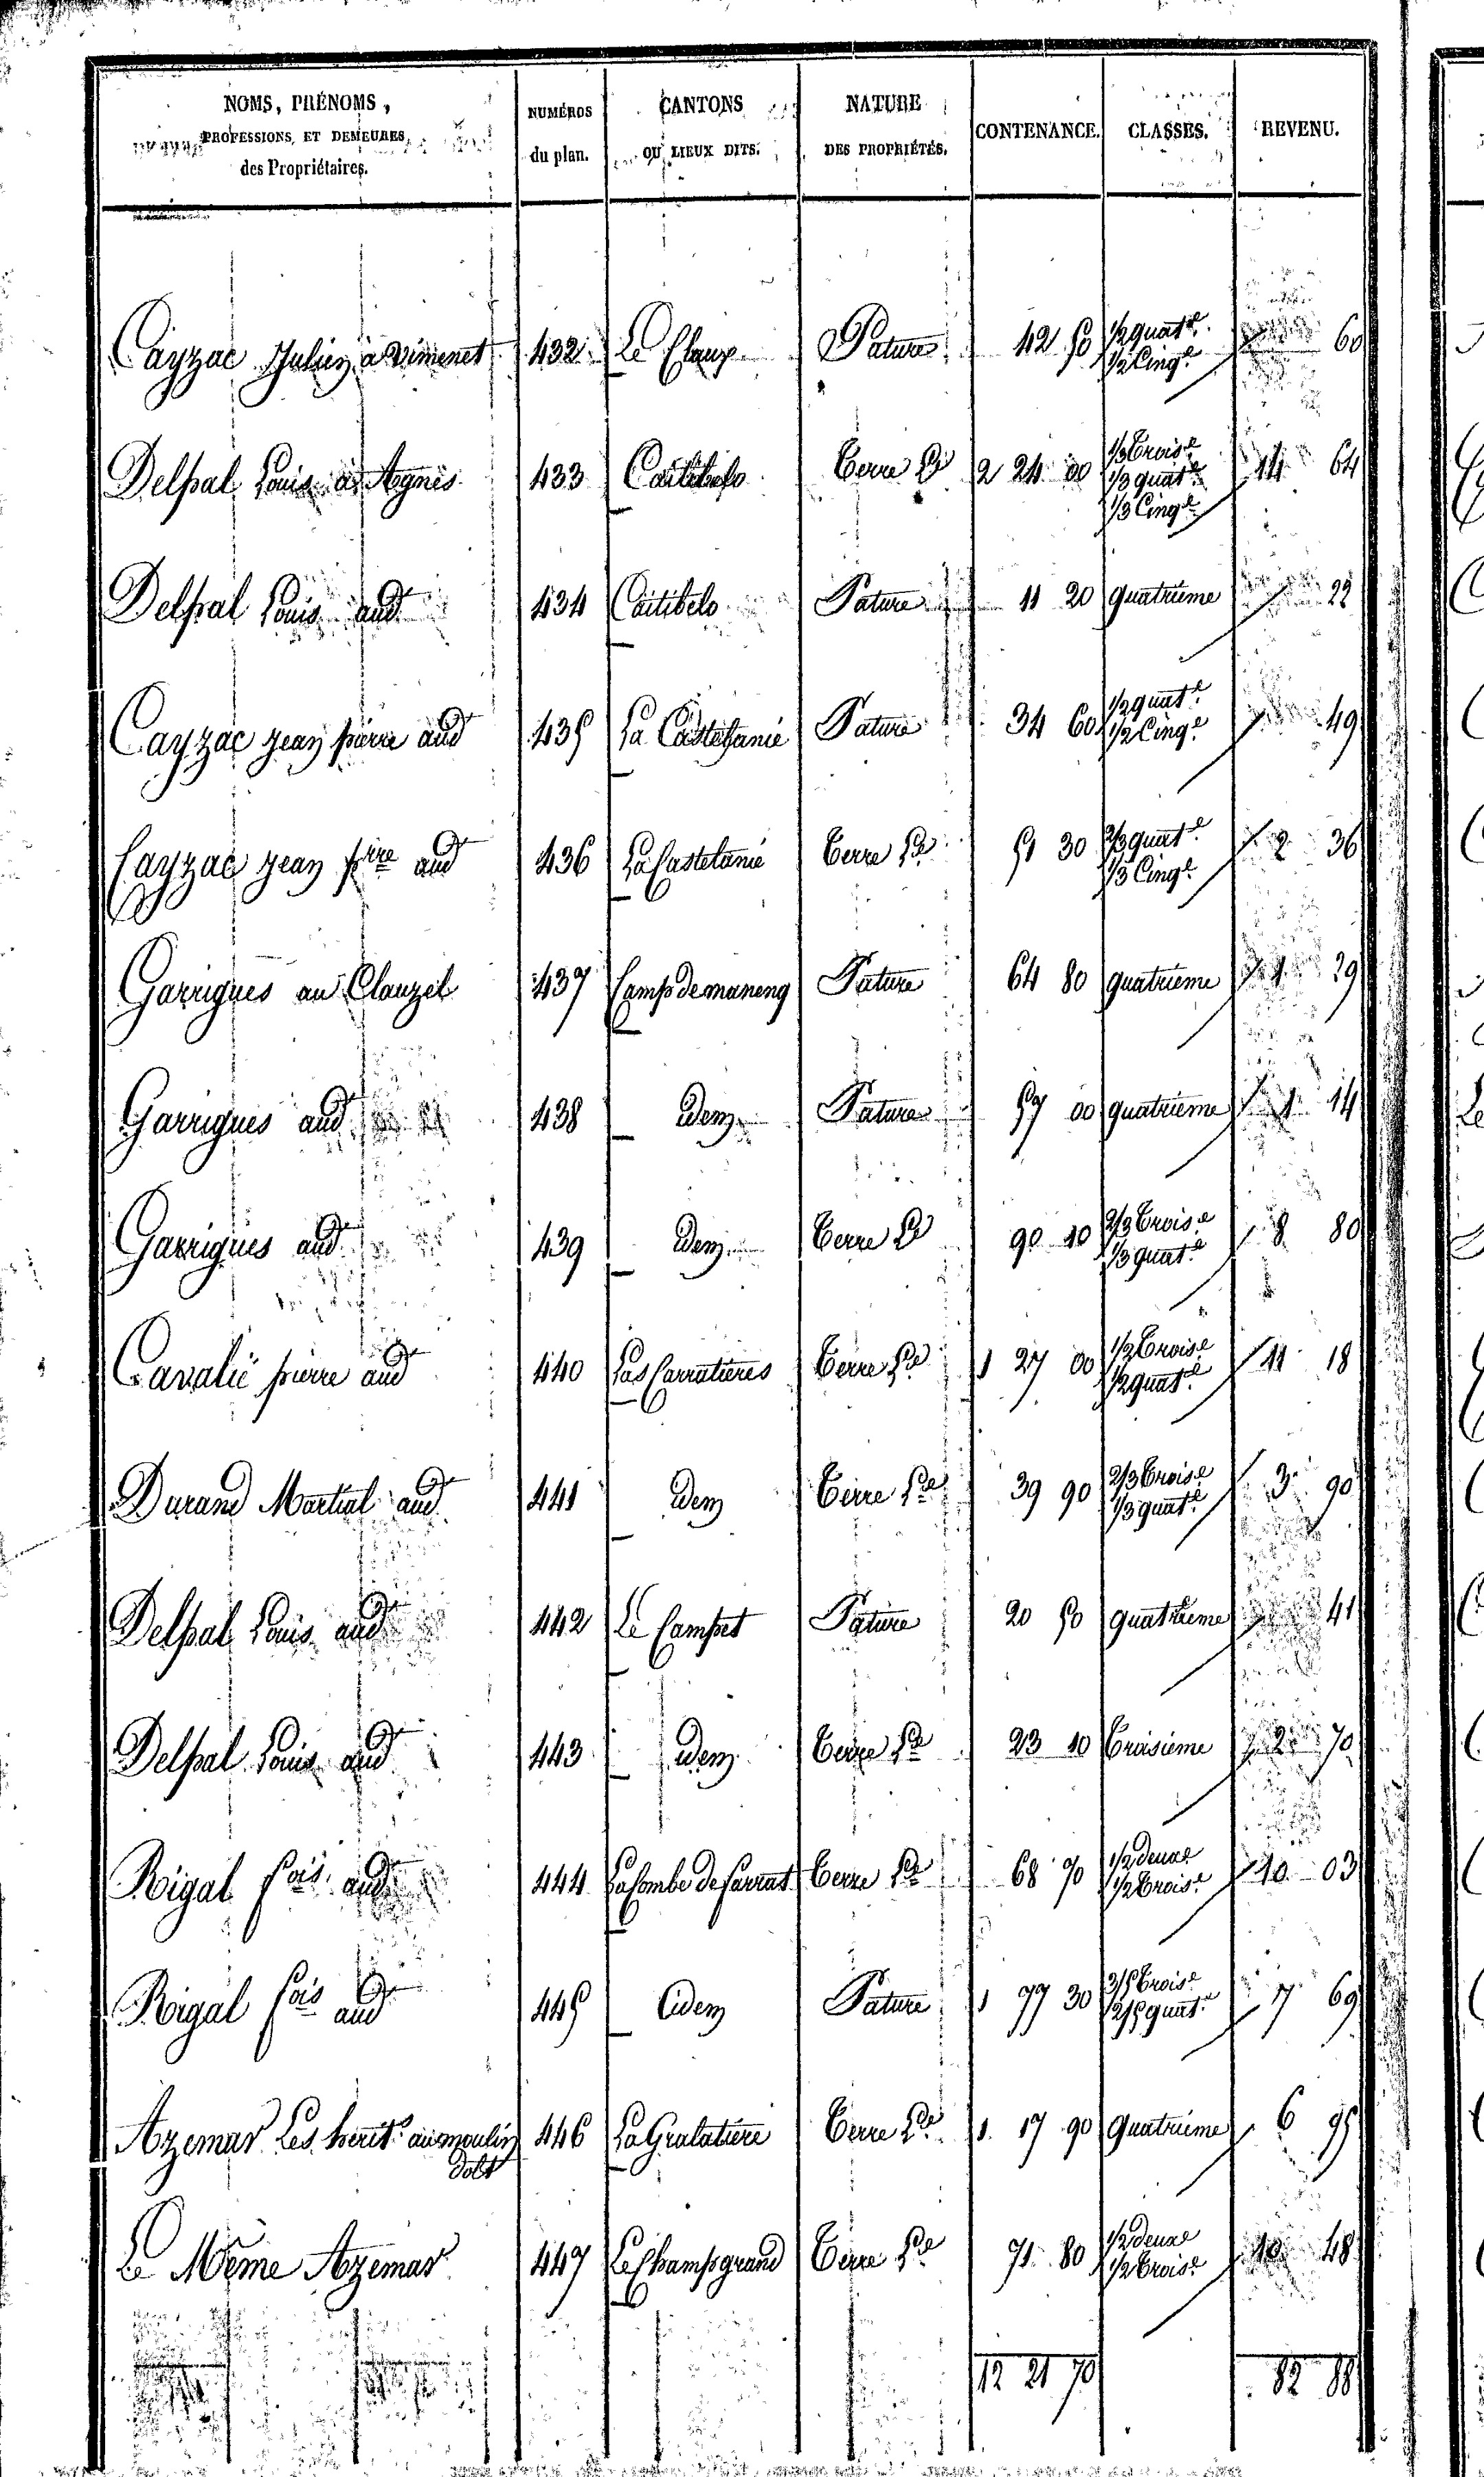 NOMS, PRÉNOMS, NUMÉROS CANTONS NATURE CONTENANCE. CLASSES. REVENU.
PROFESSIONS, ET DEMEURES du plan. OU LIEUX DITS. DES PROPRIÉTÉS.
des Propriétaires.
Cayzac Julien à Vimenet 432 Le Claux Pature 42 50 1/2 quat.e 1/2 Cinq.e 60
Delpal Louis à Agnès 433 Caitibelo Terre L.le 2 24 00 1/3 Trois.e 1/3 quat.e 1/3 Cinq.e 14 64
Delpal Louis aud.t 434 Caitibelo Pature 11 20 quatrieme 22
Cayzac jean pierre aud.t 435 La Castelanie Pature 34 60 1/2 quat.e 1/2 Cinq.e 49
Cayzac jean p.rre aud.t 436 La Castelanie Terre L.le 51 30 2/3 quat.e 1/3 Cinq.e 2 36
Garrigues au Clauzel 437 Camp de maneng Pature 64 80 quatrieme 1 29
Garrigues aud.t 438 Idem Pature 57 00 quatrieme 1 14
Garrigues aud.t 439 Idem Terre L.le 90 10 2/3 Trois.e 1/3 quat.e 8 80
Cavalié pierre aud.t 440 Las Carratieres Terre L.le 1 27 00 1/2 Trois.e 1/2 quat.e 11 18
Durand Martial aud.t 441 Idem Terre L.le 39 90 2/3 Trois.e 1/3 quat.e 3 90
Delpal Louis aud.t 442 Le Campet Pature 20 50 quatrieme 41
Delpal Louis aud.t 443 Idem Terre L.le 23 10 Troisieme 2 70
Rigal f.ois aud.t 444 La Combe de Carrat Terre L.le 68 70 1/2 deux.e 1/2 Trois.e 10 03
Rigal f.ois aud.t 445 Idem Pature 1 77 30 3/5 Trois.e 2/5 quat.e 7 69
Azemar Les herit.s au moulin 446 La Gralatiere Terre L.le 1 17 90 Quatrieme 6 95
dolt
Le Même Azemar 447 Le Champ grand Terre L.le 71 80 1/2 deux.e 1/2 Trois.e 10 48
12 21 70 82 88